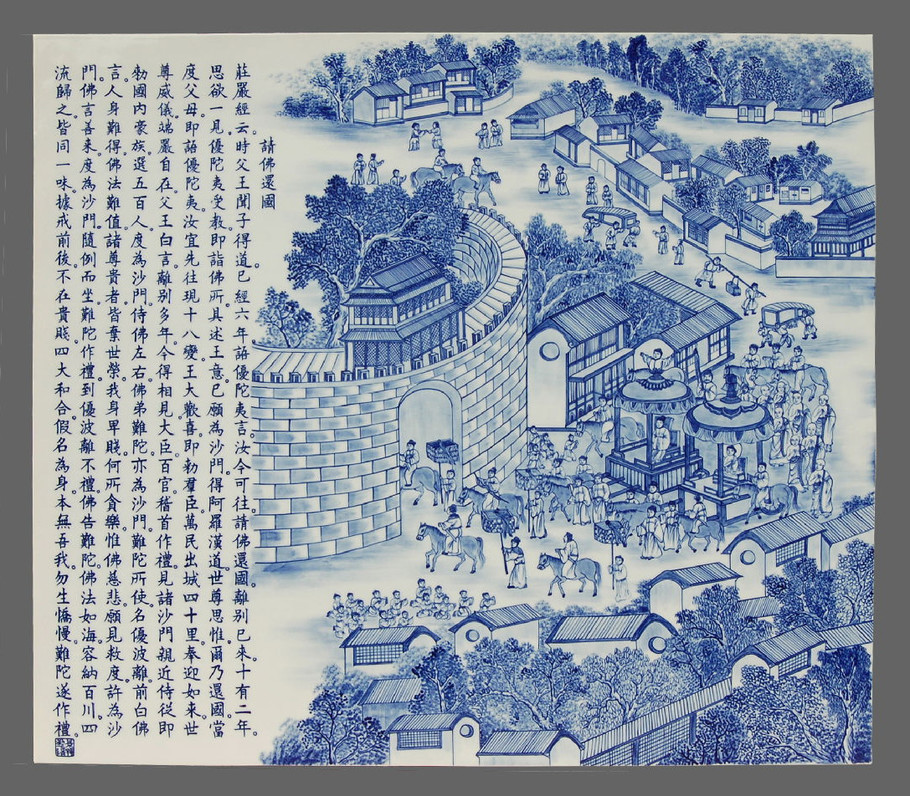 請佛還國
莊嚴經云。時父王聞子得道。已經六年。語優陀夷言。汝今可往請佛還國。離別已來十有二年。
思欲一見。優陀夷受敎。即詣佛所。具述王意。已願為沙門。得阿羅漢道。世尊思惟。爾乃還國。當
度父母。即語優陀夷。汝宜先往現十八變。王大歡喜。即勅羣臣萬民。出城四十里。奉迎如來。世
尊威儀。端嚴自在。父王白言。離別多年。今得相見。大臣百官。稽首作禮。見諸沙門。親近侍從。即
勅國內豪族。選五百人。度為沙門。侍佛左右。佛弟難陀。亦為沙門。難陀所使。名優波離。前白佛
言。人身難得。佛法難值。諸尊貴者。皆棄世榮。我身卑賤。何所貪樂。惟佛慈悲。願見救度。許為沙
門。佛言善來。度為沙門。隨例而坐。難陀作禮。到優波離不禮。佛告難陀。佛法如海。容納百川。四
流歸之。皆同一味。據戒前後。不在貴賤。四大和合。假名為身。本無吾我。勿生憍慢。難陀遂作禮。